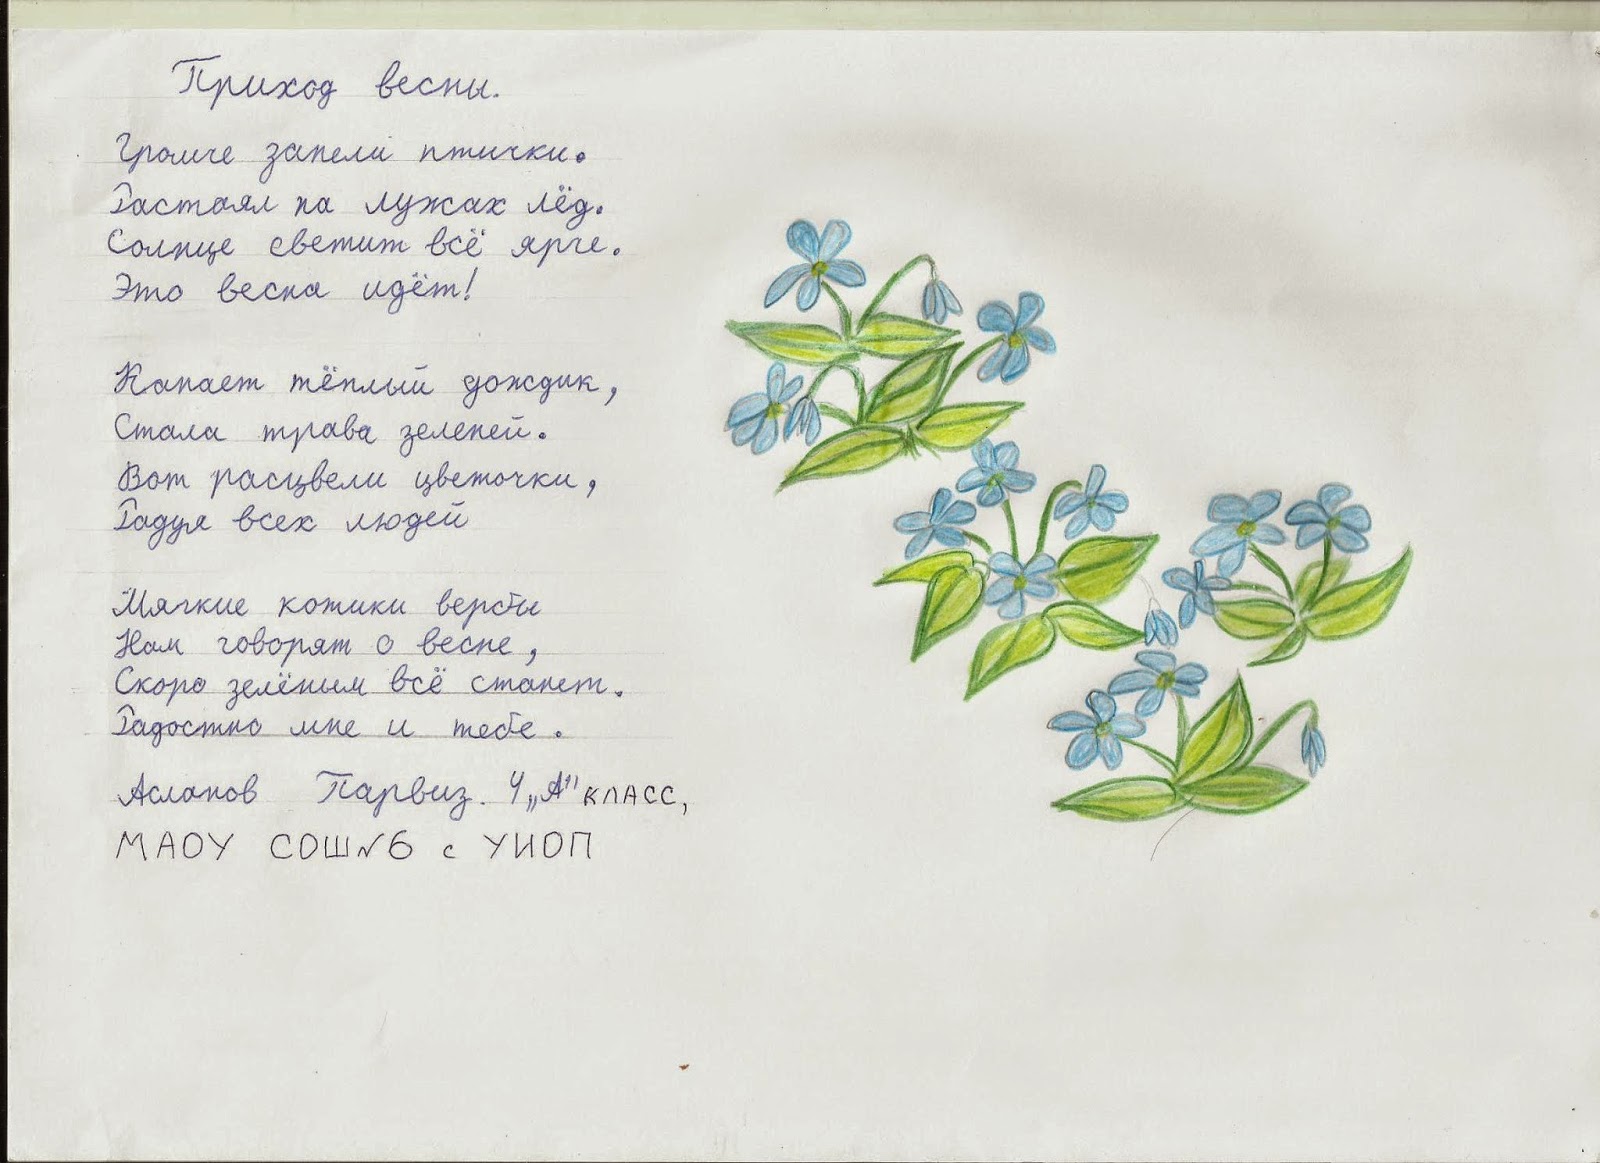 Приход весны.
Громче запели птички.
Растаял на лужах лёд.
Солнце светит всё ярче.
Это весна идёт!
Капает тёплый дождик,
Стала трава зеленей.
Вот расцвели цветочки,
Радуя всех людей
Мягкие котики вербы
Нам говорят о весне,
Скоро зелёным всё станет.
Радостно мне и тебе.
Асланов Парвиз. 4 „А" класс,
МАОУ СОШ №6 с УИОП